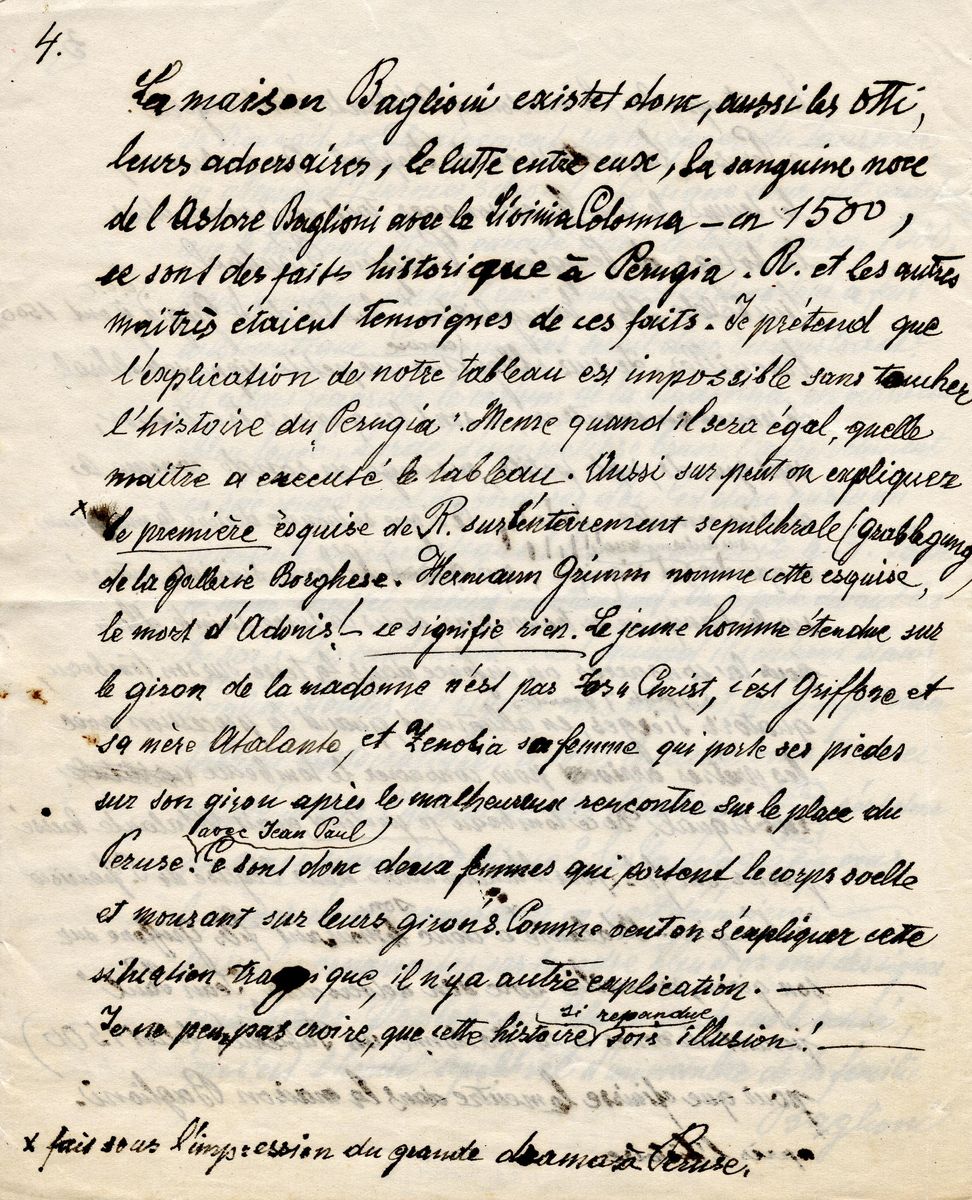 4.
La maison Baglioni existet donc, aussi les Otti,
leurs adversaires, le lutte entre eux, la sanguine noce
de l'Astore Baglioni avec la Livinia Colonna – en 1500,
ce sont des faits historique à Perugia. R. et les autres
maitres étaient temoignes de ces faits. Je prétend que
l'explication de notre tableau est impossible sans toucher
l'histoire du Perugia. Meme quand il sera égal, quelle
maitre a executé le tableau. Aussi sur peut on expliquez
x le première esquise de R. sur l'enterrement sepulchrale (Grablegung)
de la Gallerie Borghese. Hermann Grimm nomme cette esquise,
le mort d'Adonis! – ce signifie rien. Le jeune homme étendue sur
le giron de la madonne n'est pas Jesu Christ, c'est Griffone et
sa mère Atalante, et Zenobia sa femme qui porte ses pieds
sur son giron après le malheureux rencontre sur le place du
(avec Jean Paul)
Peruse. Ce sont donc deux femmes qui portent le corps svelte
et mourant sur leurs girons. Comme veut on s'expliquer cette
situation tragique, il n'y a autre explication. —
si repandue
Je ne peux pas croire, que cette histoire sois illusion! —
x fais sous l'impression du grande drama à Peruse.